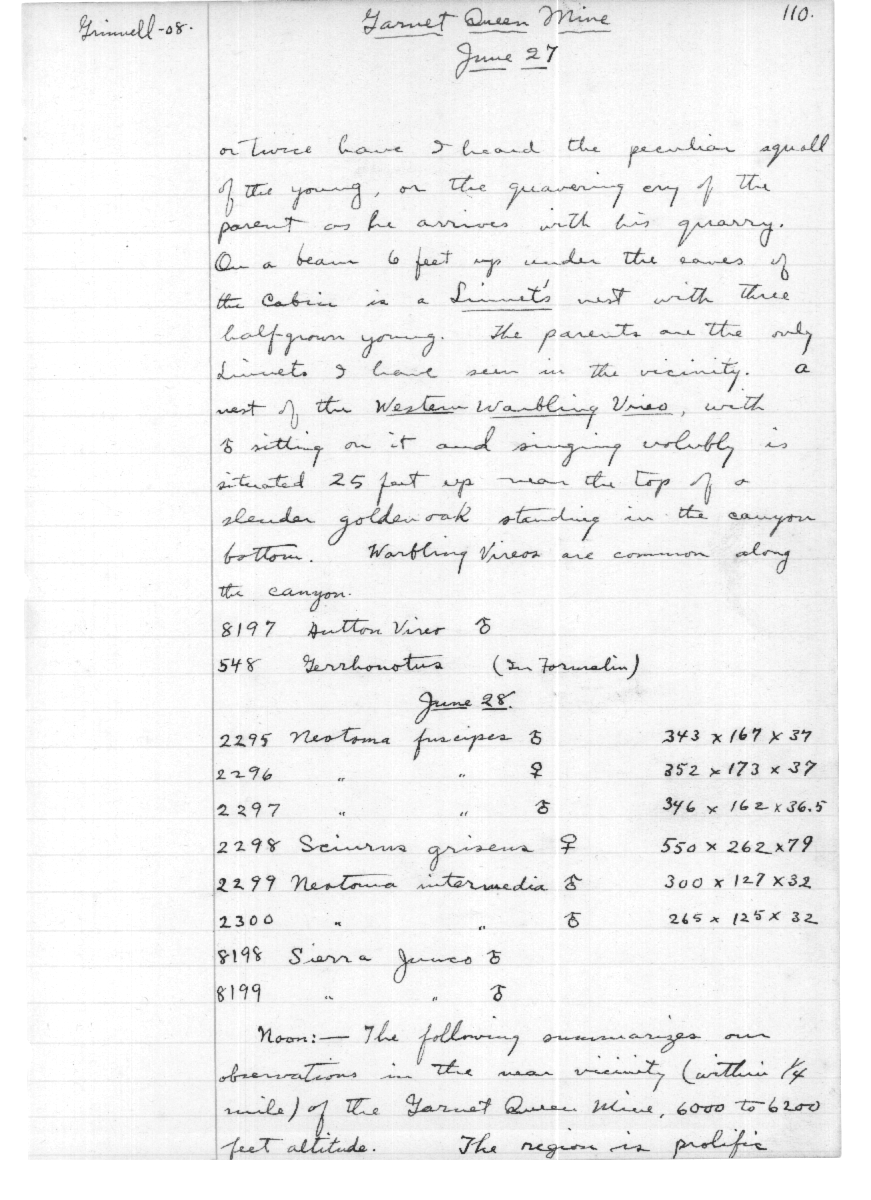 Grinnell-08.
Garnet Queen Mine
110.
June 27
or twice have I heard the peculiar squall
of the young, or the quavering cry of the
parent as he arrives with his quarry.
On a beam 6 feet up under the eaves of
the Cabin is a Linnet's nest with three
half-grown young. The parents are the only
Linnets I have seen in the vicinity. A
nest of the Western Warbling Vireo, with
♂ sitting on it and singing volubly is
situated 25 feet up near the top of a
slender golden oak standing in the canyon
bottom. Warbling Vireos are common along
the canyon.
8197 Hutton Vireo ♂
548 Gerrhonotus (In Formalin)
June 28.
2295 Neotoma fuscipes ♂ 343 x 167 x 37
2296 " " ♀ 352 x 173 x 37
2297 " " ♂ 346 x 162 x 36.5
2298 Sciurus griseus ♀ 550 x 262 x 79
2299 Neotoma intermedia ♂ 300 x 127 x 32
2300 " " ♂ 265 x 125 x 32
8198 Sierra Junco ♂
8199 " " ♂
Noon:— The following summarizes our
observations in the near vicinity (within 1/4
mile) of the Garnet Queen Mine, 6000 to 6200
feet altitude. The region is prolific